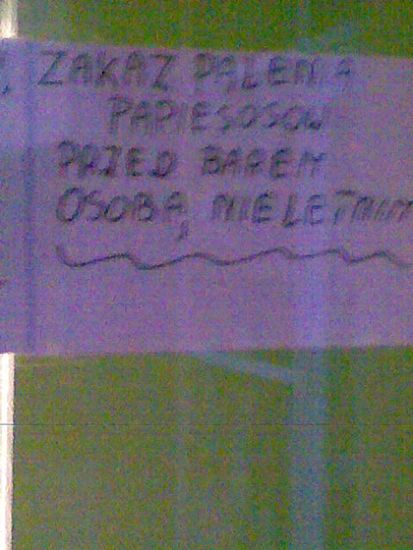 ZAKAZ PĄLENIA
PAPIESOSOW
PRZED BAREM
OSOBĄ NIELETNIM